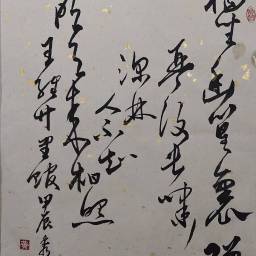 坐幽篁裏彈
琴復長嘯
深林
人不知
明月來相照
王維竹里館 甲辰